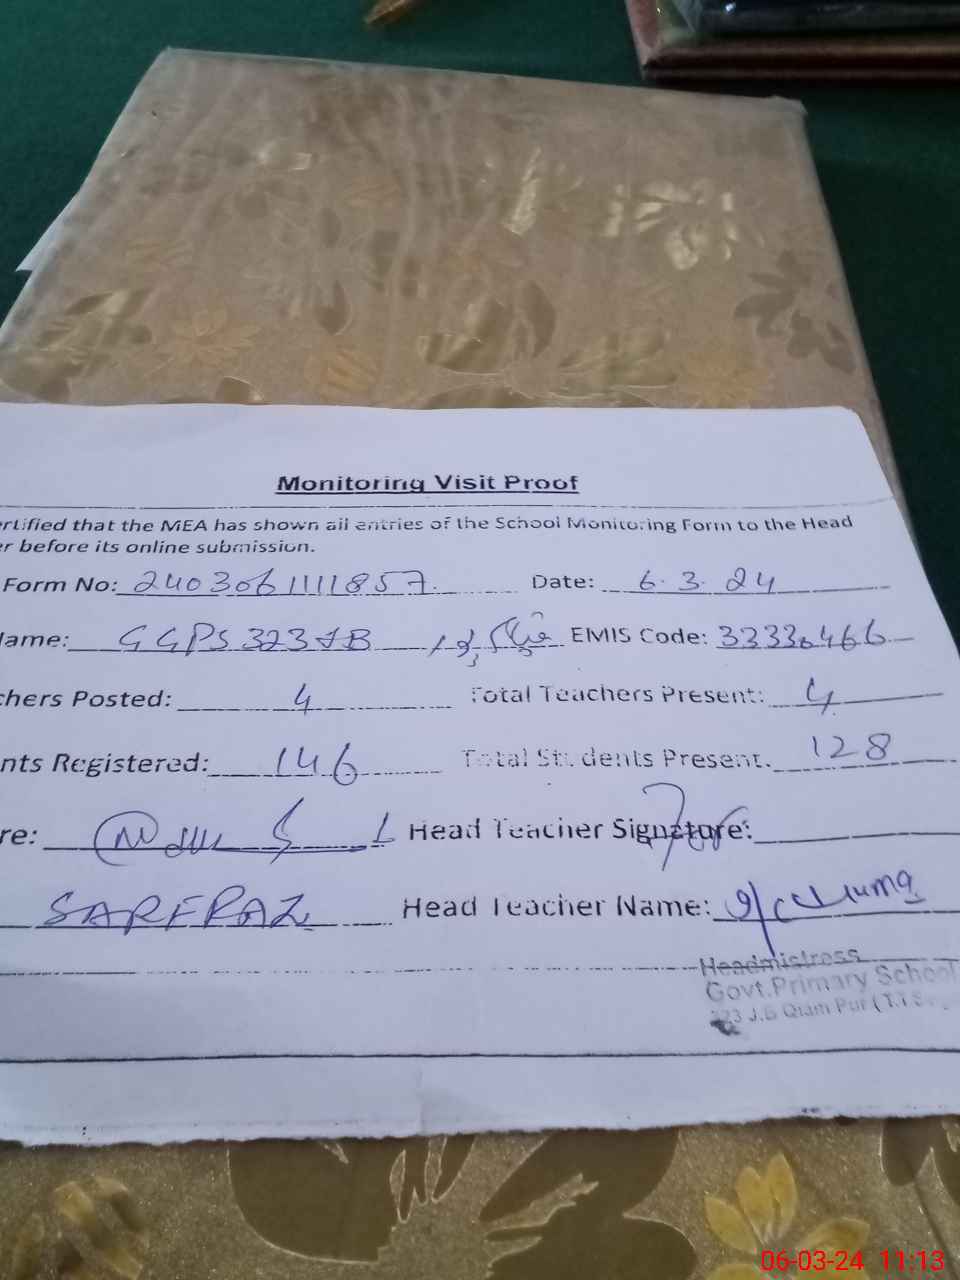 Monitoring Visit Proof
ertified that the MEA has shown all entries of the School Monitoring Form to the Head
er before its online submission.
Form No: 2403061111857 Date: 6.3.24
Name: GGPS 323 JB EMIS Code: 33330466
chers Posted: 4 Total Teachers Present: 4
nts Registered: 146 Total Students Present. 128
re: Head Teacher Signature:
SARFRAZ Head Teacher Name:
Headmistress
Govt.Primary School
323 J.B Qiam Pur (T.T.S
06-03-24 11:13